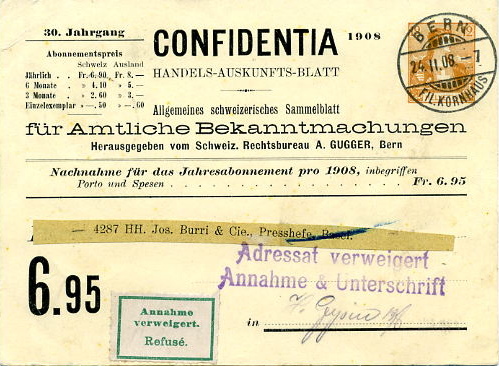 30. Jahrgang
Abonnementspreis
Schweiz Ausland
Jährlich . . Fr. 6.90 Fr. 8.—
6 Monate . » 4.10 » 5.—
3 Monate . » 2.60 » 3.—
Einzelexemplar » —.50 » —.60
CONFIDENTIA 1908
HANDELS-AUSKUNFTS-BLATT
BERN
24.II.08.–7
FIL. KORNHAUS
Allgemeines schweizerisches Sammelblatt
für Amtliche Bekanntmachungen
Herausgegeben vom Schweiz. Rechtsbureau A. GUGGER, Bern
Nachnahme für das Jahresabonnement pro 1908, inbegriffen
Porto und Spesen . . . . . . . . . . . . . . . Fr. 6.95
— 4287 HH. Jos. Burri & Cie., Presshefe, Basel.
Adressat verweigert
Annahme & Unterschrift
6.95
Annahme
verweigert.
Refusé.
in